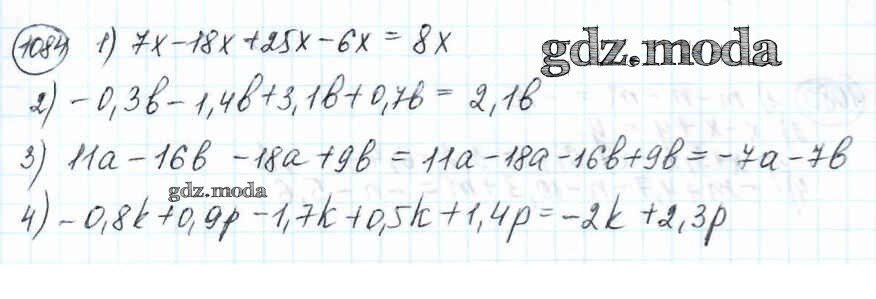 1084 1) 7x-18x+25x-6x = 8x
gdz.moda
2) -0,3в-1,4в+3,1в+0,7в= 2,1в
3) 11а-16в -18а+9в = 11а-18а-16в+9в=-7а-7в
gdz.moda
4) -0,8k+0,9p-1,7k+0,5k+1,4p=-2k+2,3p